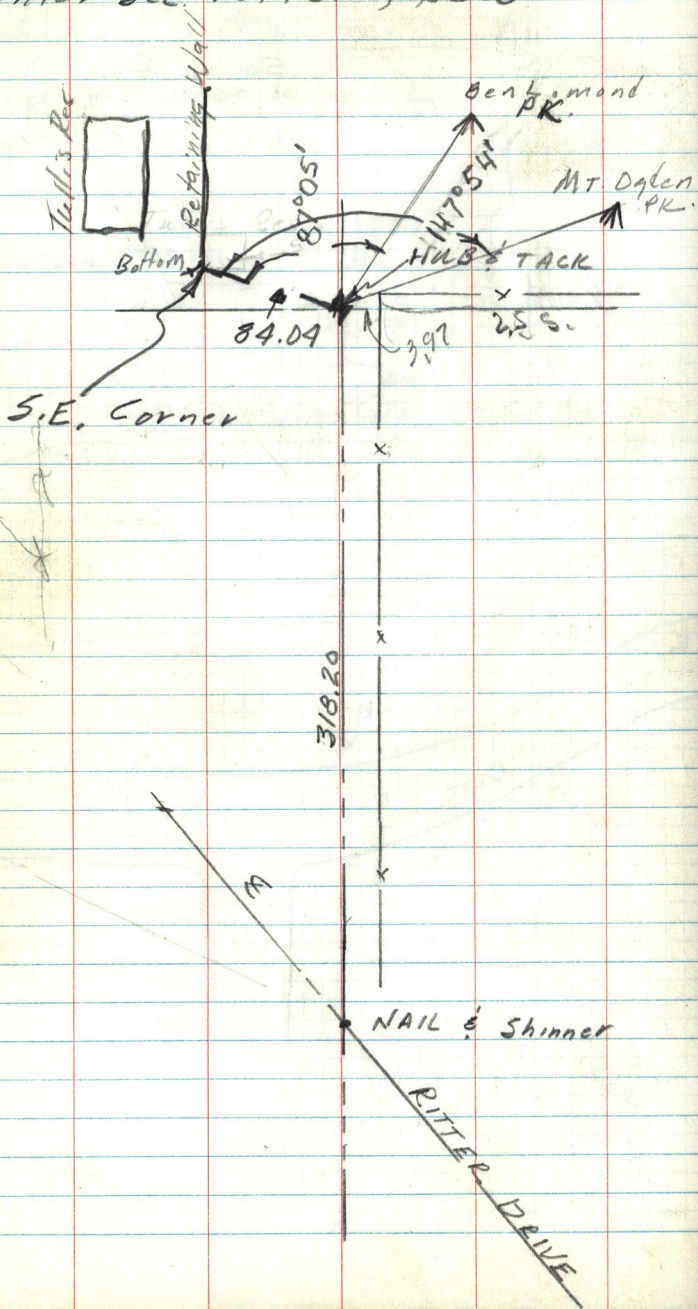 Tullis Rec
Retaining Wall
Ben Lomond
PK.
87°05'
147°54'
MT Ogden
PK.
Bottom
HUB & TACK
84.04
3.97
2.5 S.
S.E. Corner
318.20
NAIL & Shinner
RITTER DRIVE